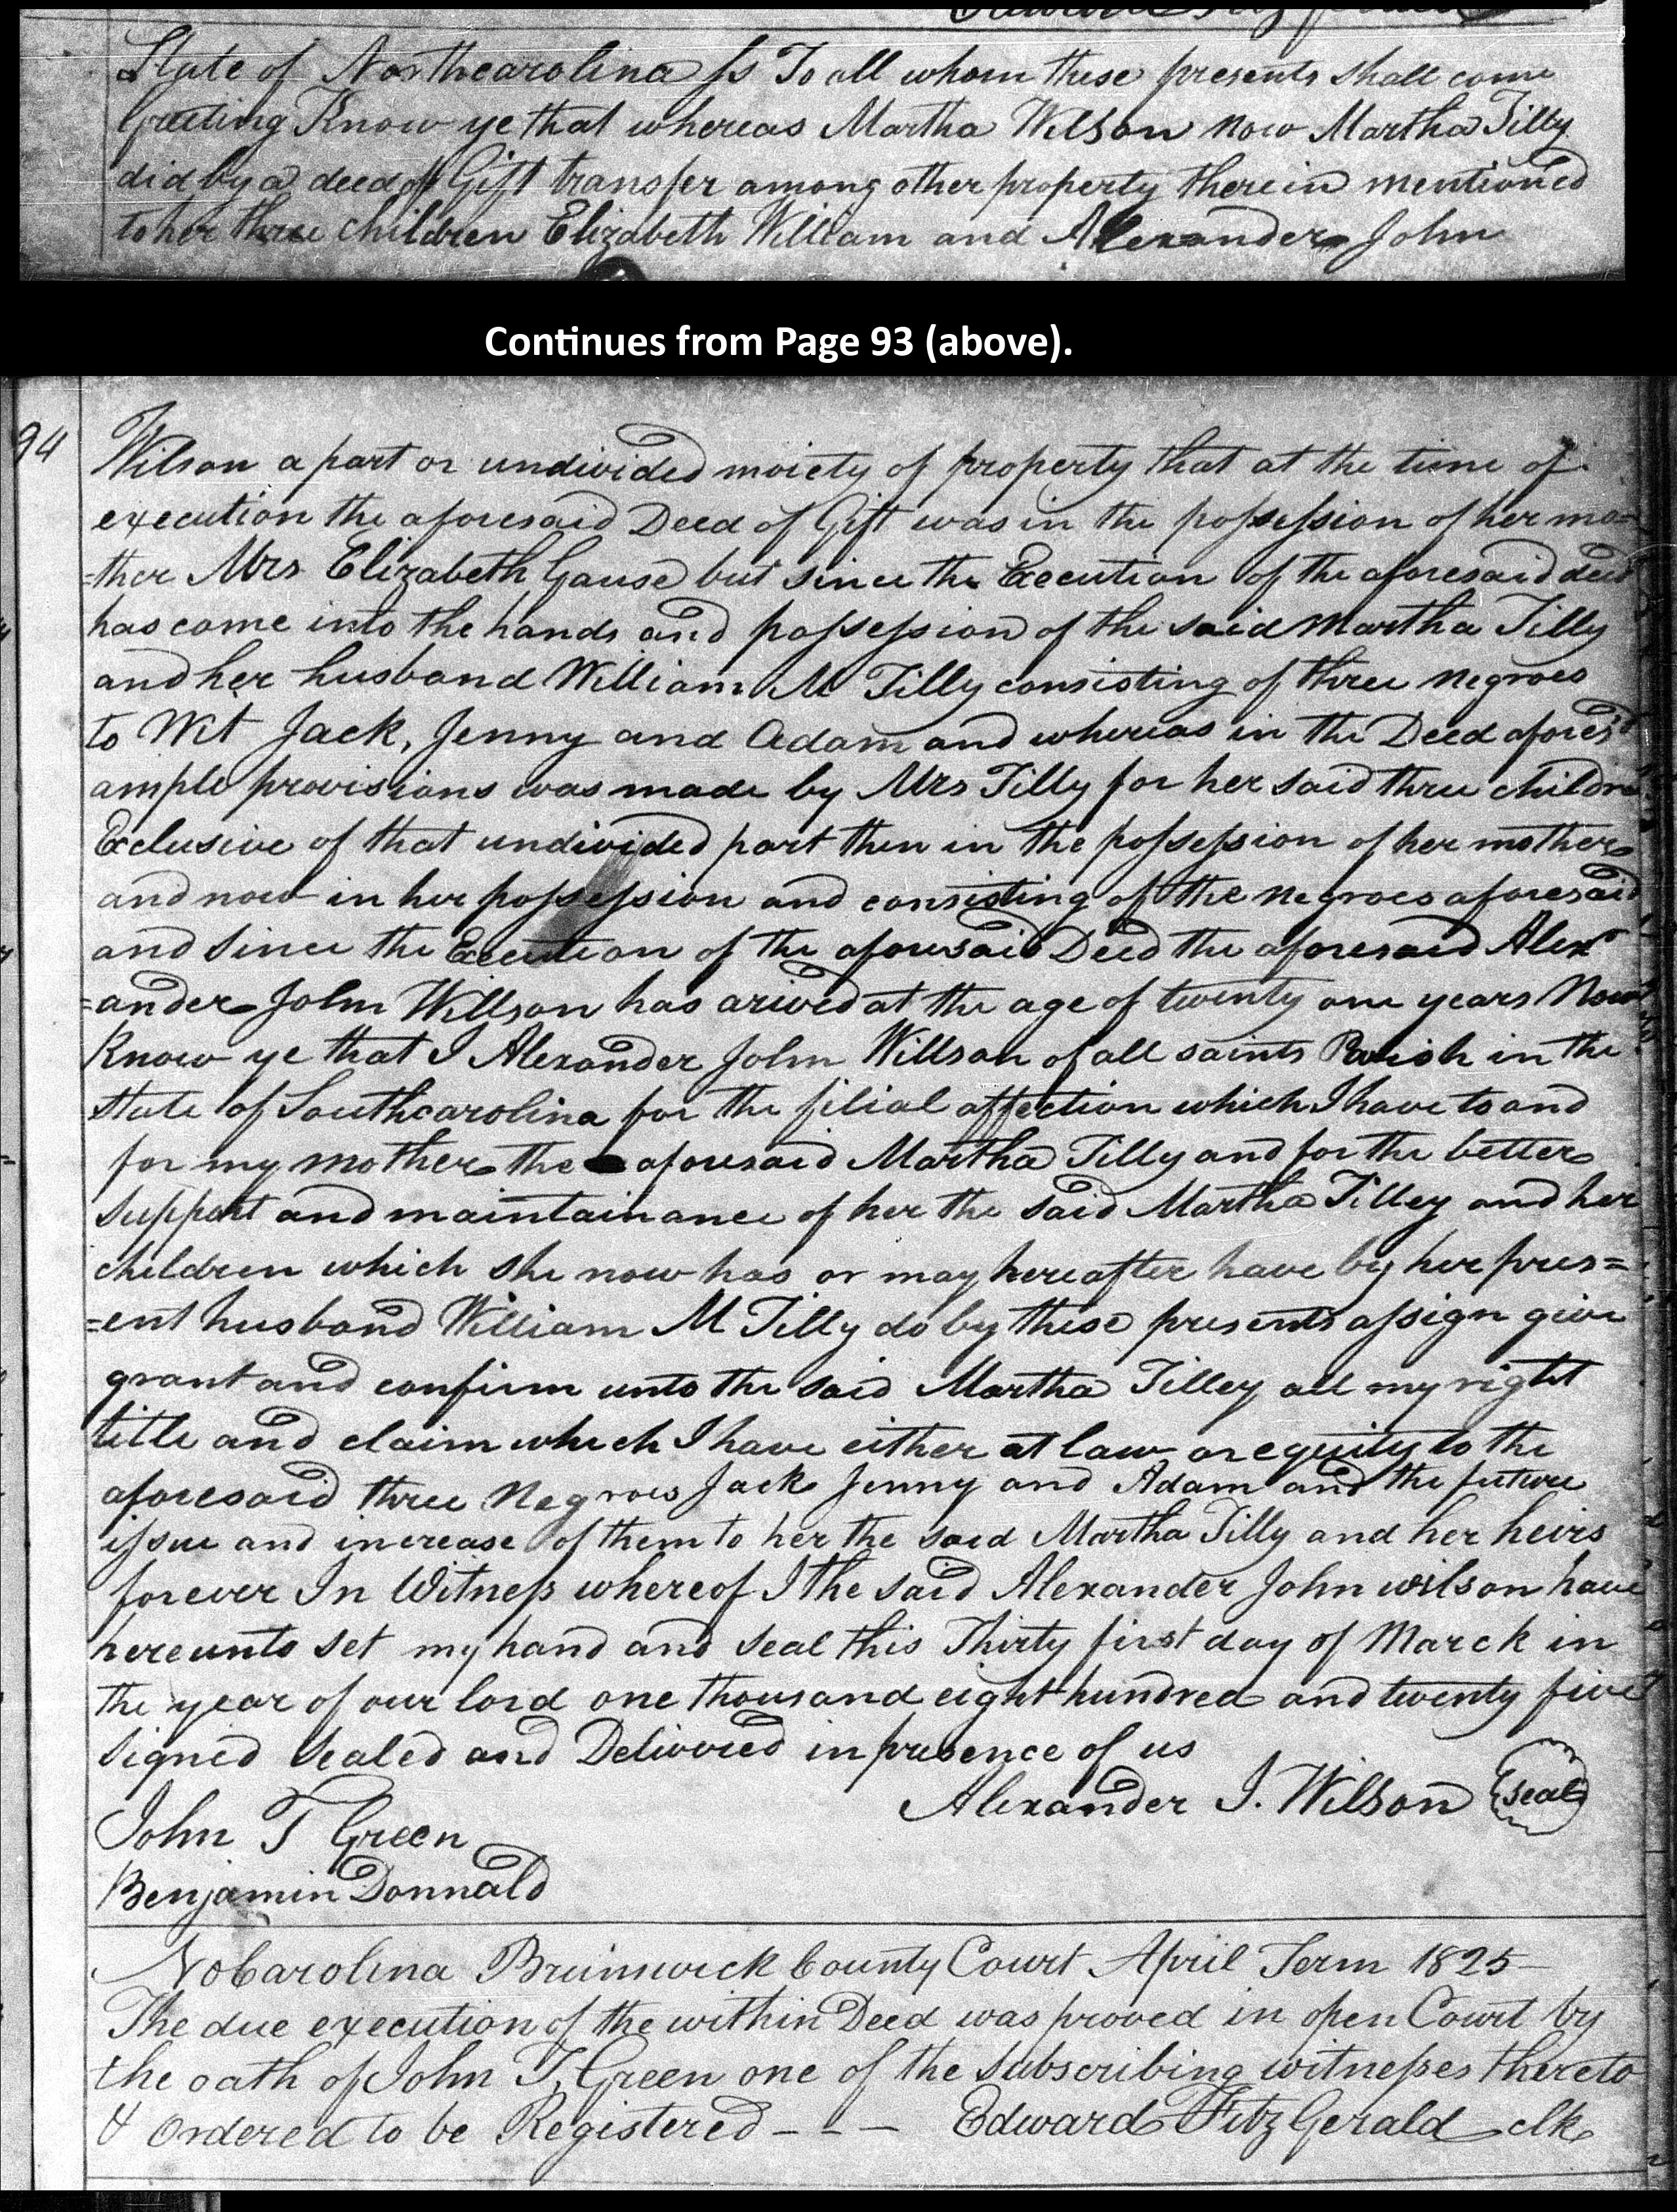 State of Northcarolina Ss To all whom these presents shall come
Greeting Know ye that whereas Martha Wilson now Martha Tilly
did by a deed of Gift transfer among other property therein mentioned
to her three children Elizabeth William and Alexander John
Continues from Page 93 (above).
94
Wilson a part or undivided moiety of property that at the time of
execution the aforesaid Deed of Gift was in the possession of her mo=
=ther Mrs Elizabeth Gause but since the Execution of the aforesaid deed
has come into the hands and possession of the said Martha Tilly
and her husband William M Tilly consisting of three negroes
to Wit Jack, Jenny and Adam and whereas in the Deed afores^d
ample provisions was made by Mrs Tilly for her said three children
Exclusive of that undivided part then in the possession of her mother
and now in her possession and consisting of the negroes aforesaid
and since the Execution of the aforesaid Deed the aforesaid Alex
=ander John Willson has arived at the age of twenty one years Now
Know ye that I Alexander John Willson of all saints Parish in the
state of Southcarolina for the filial affection which I have to and
for my mother the aforesaid Martha Tilly and for the better
support and maintainance of her the said Martha Tilley and her
children which she now has or may hereafter have by her pres=
=ent husband William M Tilly do by these presents assign give
grant and confirm unto the said Martha Tilley all my right
title and claim which I have either at law or equity to the
aforesaid three Negroes Jack Jenny and Adam and the future
issue and increase of them to her the said Martha Tilly and her heirs
forever In Witness whereof I the said Alexander John wilson have
hereunto set my hand and seal this Thirty first day of Marck in
the year of our lord one thousand eight hundred and twenty five
signed sealed and Delivered in presence of us
Alexander J. Wilson (seal)
John T Green
Benjamin Donnald
No Carolina Brunswick County Court April Term 1825
The due execution of the within Deed was proved in open Court by
the oath of John T, Green one of the subscribing witnesses thereto
& Ordered to be Registered - - - Edward FitzGerald clk